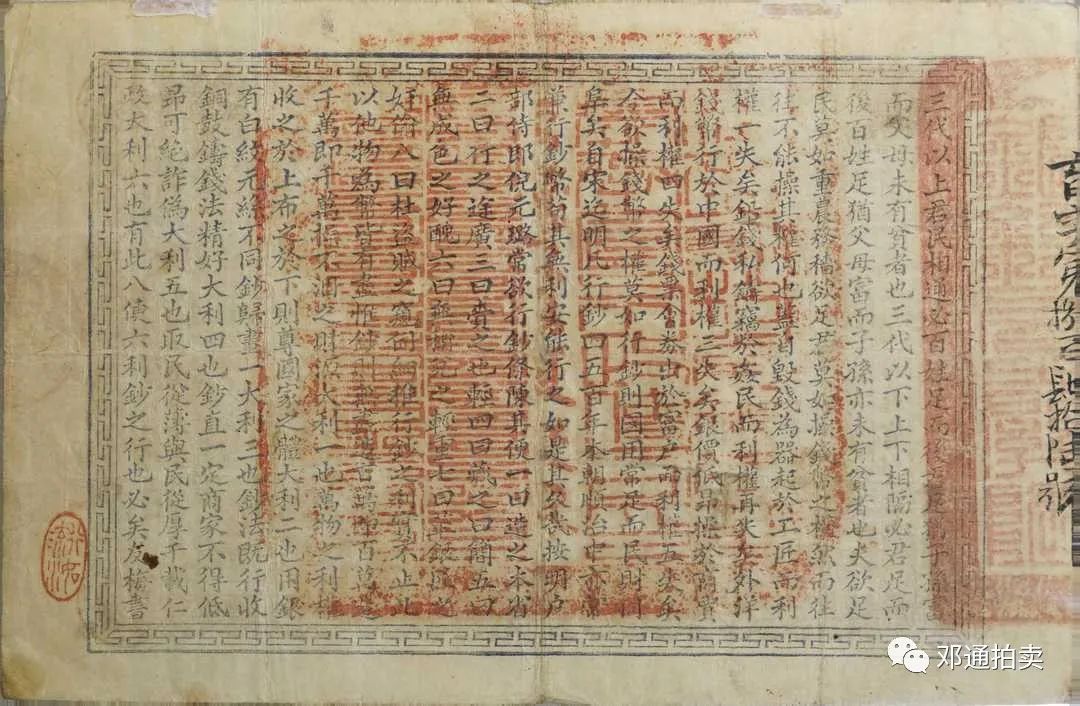 字第捌百肆拾陆號
三代以上君民相通必百姓足而後君足猶子孫富
而父母未有貧者也三代以下上下相隔必君足而
後百姓足猶父母富而子孫亦未有貧者也夫欲足
民莫如重農務穡欲足君莫如操錢幣之權然而往
往不能操其權何也蓋自毀錢為器起於工匠而利
權一失矣銀錢私鑄竊於姦民而利權再失矣外洋
錢幣行於中國而利權三失矣銀價低昂操於商賈
而利權四失矣錢票會券出於富戶而利權五失矣
今欲操錢幣之權莫如行鈔則國用常足而民財同
阜矣自宋迄明凡行鈔四五百年本朝順治中亦常
兼行鈔幣苟其無利安能行之如是其久哉按明戶
部侍郎倪元璐常欲行鈔條陳其便一曰造之本省
二曰行之途廣三曰賫之也輕四曰藏之曰簡五曰
無成色之好醜六曰無稱兌之輕重七曰革銀匠之
奸偷八曰杜盜賊之窺伺細推行鈔之利實不止此
以他物為幣皆有盡惟鈔則無盡造百萬即百萬造
千萬即千萬操不涸之財源大利一也萬物之利權
收之於上布之於下則尊國家之體大利二也用銀
有白紋元絲不同鈔歸畫一大利三也鈔法既行收
銅鼓鑄錢法精好大利四也鈔直一定商家不得低
昂可絕詐偽大利五也取民從薄與民從厚千載仁
政大利六也有此八便六利鈔之行也必矣友橋書
邓通拍卖